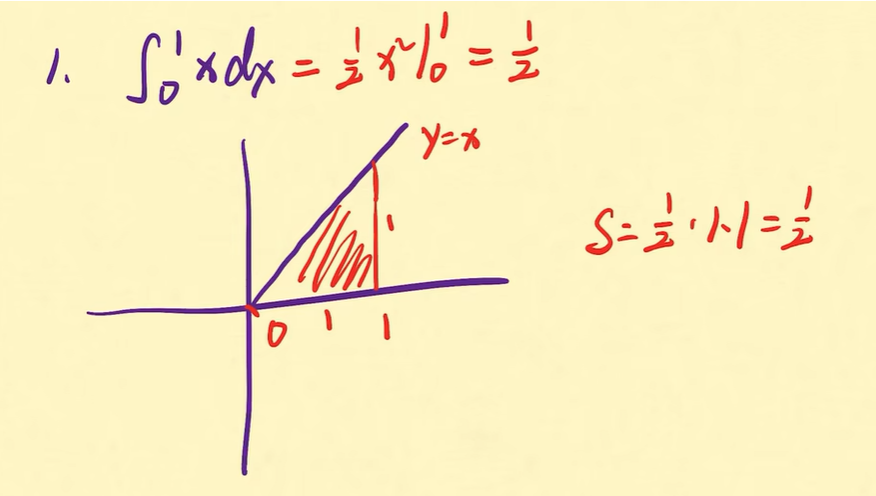 1. ∫₀¹ x dx = ½ x² |₀¹ = ½
y=x
S = ½ · 1 · 1 = ½
1
0 1 1